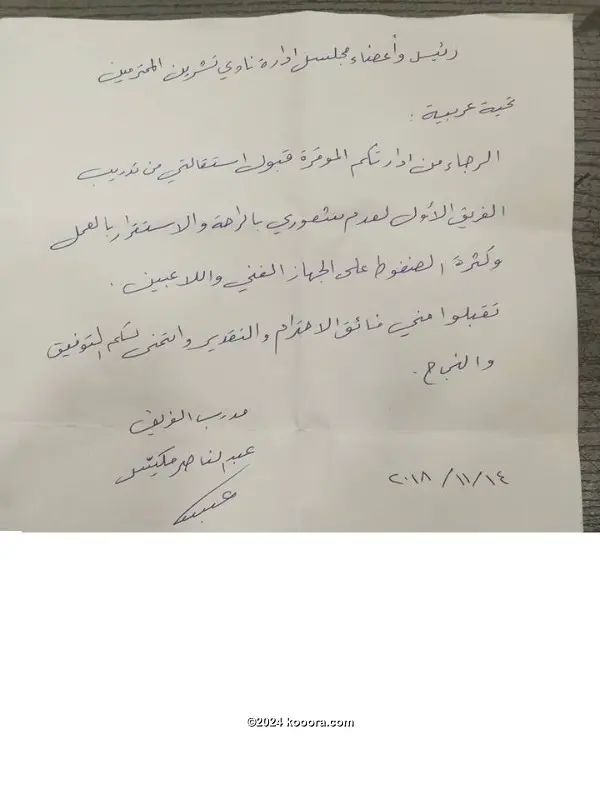 رئيس وأعضاء مجلس ادارة نادي تشرين المحترمين
تحية عربية :
الرجاء من ادارتكم الموقرة قبول استقالتي من تدريب
الفريق الأول لعدم شعوري بالراحة والاستقرار بالعمل
وكثرة الضغوط على الجهاز الفني واللاعبين .
تقبلوا مني فائق الاحترام والتقدير واتمنى لكم التوفيق
والنجاح .
مدرب الفريق
عبد الناصر مكيس
٢٠١٨/١١/١٤
©2024 kooora.com